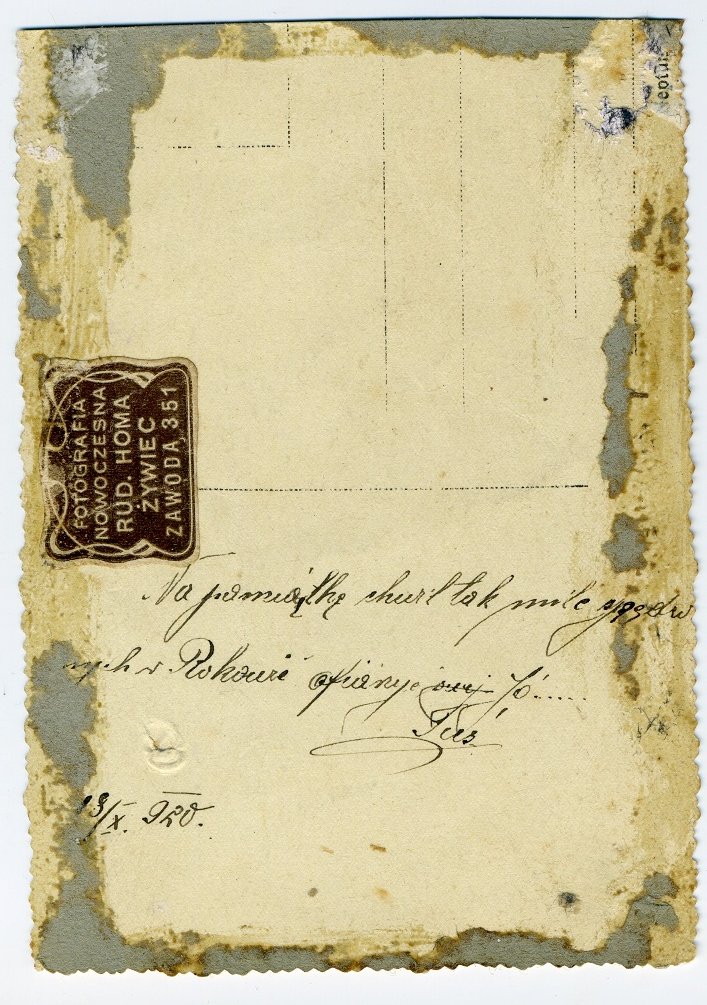 FOTOGRAFIA
NOWOCZESNA
RUD. HOMA
ŻYWIEC
ZAWODA 351
Na pamiątkę chwil tak mile
nych w ofiaruje
Tus
13/X. 920.